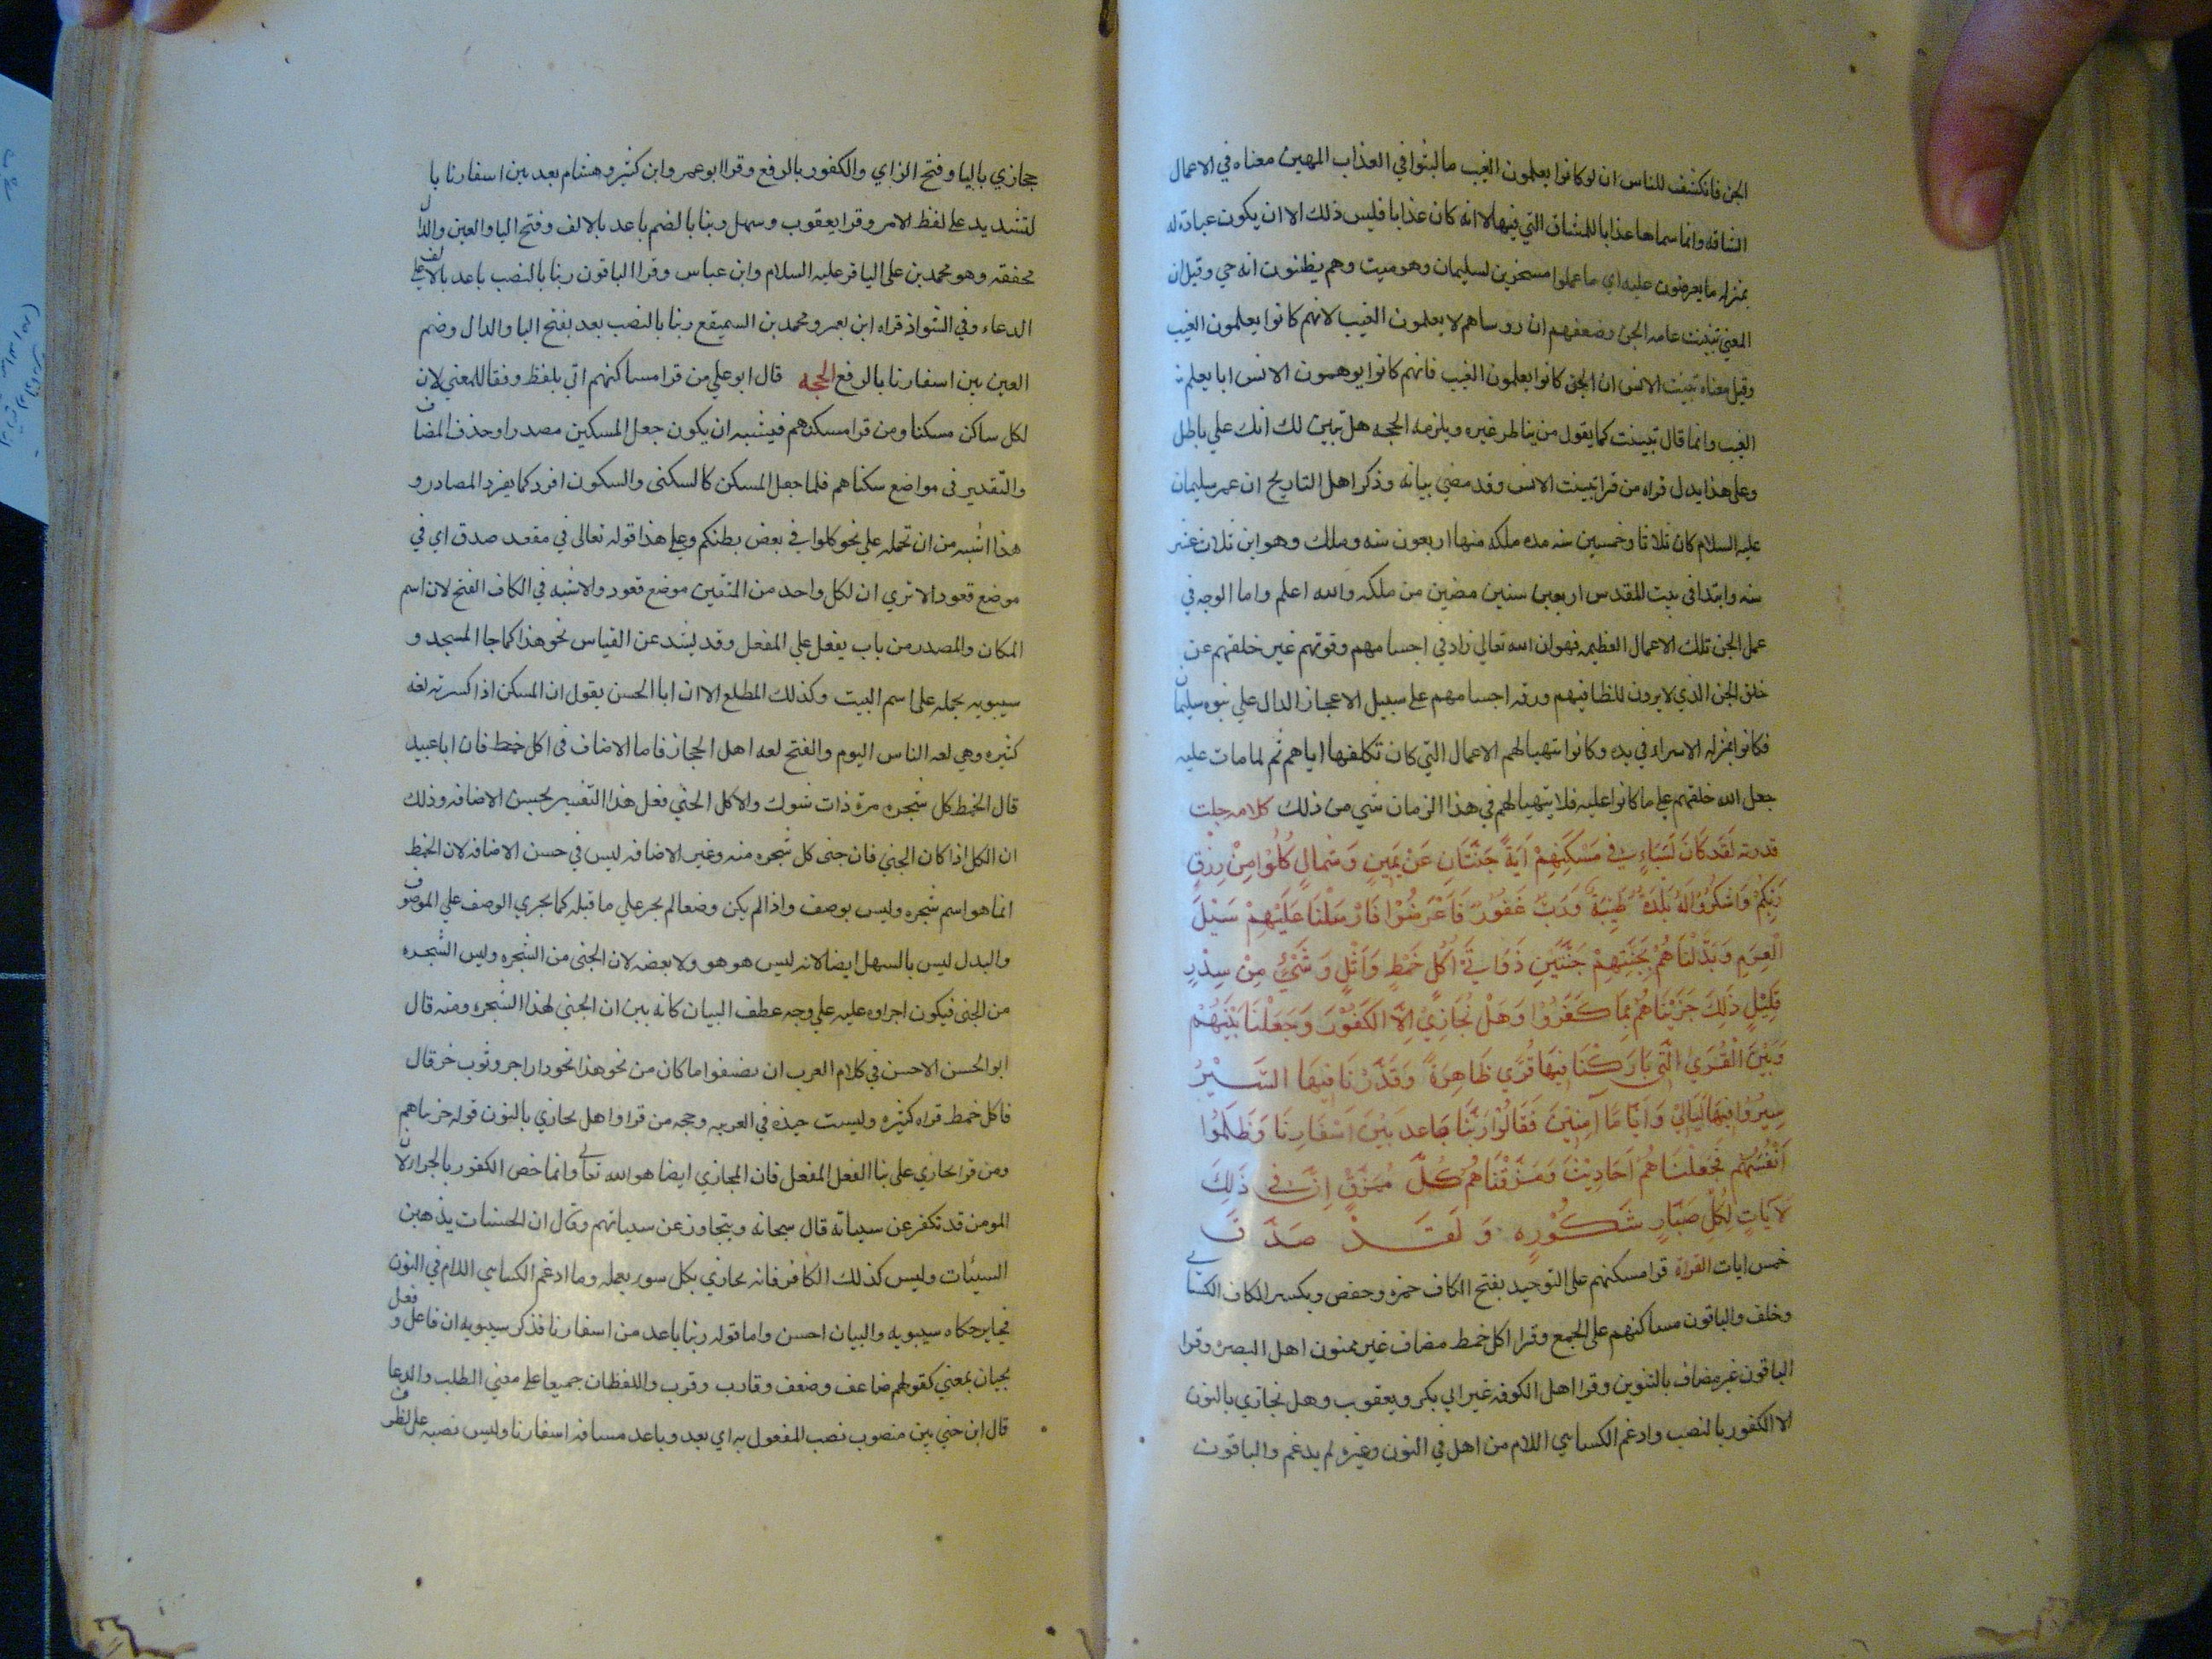 الجن فانكشف للناس ان لو كانوا يعلمون الغيب ما لبثوا في العذاب المهين معناه في الاعمال
الشاقه وانما سماها عذابا للمشاق التي فيها لا انه كان عذابا فليس ذلك الا ان يكون عبادة له
بمنزله ما يعرضون عليه اي ما عملوا مسخرين لسليمان وهو ميت وهم يظنون انه حي وقيل ان
المعني تبينت عامه الجن وضعفهم ان روساهم لا يعلمون الغيب لانهم كانوا يعلمون الغيب
وقيل معناه تبينت الانس ان الجن كانوا يعلمون الغيب فانهم كانوا يوهمون الانس
الغيب وانما قال تبينت كما يقول من يناظر غيره ويلزمه الحجه هل تبين لك انك علي باطل
وعلي هذا يدل قراه من قرا تبينت الانس وقد مضي بيانه وذكر اهل التاريخ ان عمر سليمان
عليه السلام كان ثلاثا وخمسين سنه مده ملكه منها اربعون سنه وملك وهو ابن ثلاث عشر
سنه وابتدا في بيت المقدس اربعين سنين مضين من ملكه والله اعلم واما الوجه في
عمل الجن تلك الاعمال العظيمه فهو ان الله تعالي زاد في اجسامهم وقوتهم غير خلقتهم عن
خلق الجن الذي لا يرون للظافتهم ورقه اجسامهم علي سبيل الاعجاز الدال علي نبوه سليمان
فكانوا بمنزله الاسراء في يده وكانوا تتهيا لهم الاعمال التي كان تكلفها اياهم ثم لما مات عليه
جعل الله خلقهم علي ما كانوا عليه فلا يتهيا لهم في هذا الزمان شي من ذلك كلامه جلت
قدرته لَقَد كَانَ لَسَبَاءٍ فِي مَسْكَنِهِمْ اَيَةً جَنَّتَانِ عَنْ يَمِينٍ وَشمالٍ كُلُوا مِنْ رِزْقِ
رَبِّكُمْ وَاشكرُوا لَهُ بَلْدَة طَيِّبَة وَرَبٌّ غَفُورٌ فَاَعْرَضُوا فَارْسَلْنَا عَلَيْهِمْ سَيْلَ
الْعَرِمِ وَبَدَّلْنَاهُمْ بِجَنَّتَيهِمْ جَنَّتَيْنِ ذَوَاتي اُكُلٍ خَمْطٍ وَاَثْلٍ وَشَيْئٍ مِنْ سِدْرٍ
قَلِيْلٍ ذَلِكَ جَزَيْنَاهُمْ بِمَا كَفَرُوا وَهَلْ نُجَازِي اِلَّا الكَفُوْرَ وَجَعَلْنَا بَيْنَهُمْ
وَبَيْنَ الْقُرَي الَّتِي بَارَكْنَا فِيهَا قُرًي ظَاهِرَةً وَقَدَّرْنَا فِيهَا السَّيْرَ
سِيْرُوا فِيهَا لَيَالِيَ وَاَيَّامًا آمِنِيْنَ فَقَالُوْا رَبَّنَا بَاعد بَيْنَ اَسْفَارِنَا وَظَلَمُوا
اَنْفُسَهُم فَجَعَلْنَاهُمْ اَحَادِيْثَ وَمَزَّقْنَاهُمْ كُلَّ مُمَزَّقٍ اِنَّ فِي ذَلِكَ
لَايَاتٍ لِكُلِّ صَبَّارٍ شَكُوْرٍ وَلَقَدْ صَدَّقَ
خمس ايات القراة قرا مسكنهم علي التوحيد بفتح الكاف حمزه وحفص وبكسر الكاف الكسائي
وخلف والباقون مساكنهم علي الجمع وقرا اكل خمط مضاف غير ممنون اهل البصره وقرا
الباقون غير مضاف بالتنوين وقرا اهل الكوفه غير ابي بكر ويعقوب وهل نجازي بالنون
الا الكفور بالنصب وادغم الكسائي اللام من اهل في النون وغيره لم يدغم والباقون
جحازي باليا وفتح الزاي والكفور بالرفع وقرا ابو عمر وابن كثير وهشام بعد بين اسفارنا با
لتشديد علي لفظ الامر وقرا يعقوب وسهل ربنا بالضم باعد بالالف وفتح اليا والعين والدال
محففه وهو محمد بن علي الباقر عليه السلام وابن عباس وقرا الباقون ربنا بالنصب باعد بالالف علي
الدعاء وفي الشواذ قراه ابن يعمر ومحمد بن السميقع ربنا بالنصب بعد بفتح البا والدال وضم
العين بين اسفارنا بالرفع الحجه قال ابو علي من قرا مساكنهم اتي بلفظ وفقا للمعني لان
لكل ساكن مسكنا ومن قرا مسكنهم فيشبه ان يكون جعل المسكين مصدرا وحذف المضاف
والتقدير في مواضع سكناهم فلما جعل المسكن كالسكني والسكون افرد كما يفرد المصادر و
هذا اشبه من ان تحمله علي نحو كلوا في بعض بطنكم وعلي هذا قوله تعالى في مقعد صدق اي في
موضع قعود الا تري ان لكل واحد من المتقين موضع قعود والاشبه في الكاف الفتح لان اسم
المكان والمصدر من باب يفعل علي المفعل وقد يشد عن القياس نحو هذا كما جا المسجد و
سيبويه يجمله علي اسم البيت وكذلك المطلع الا ان ابا الحسن يقول ان المسكن اذا كسرته لغه
كثيره وهي لغه الناس اليوم والفتح لعه اهل الحجاز فاما الاضاف في اكل خمط فان ابا عبيد
قال الخمط كل شجره مرة ذات شوك والاكل الجني فعل هذا التفسير يحسن الاضافه وذلك
ان الكل اذا كان الجني فان جني كل شجره منه وغير الاضافه ليس في حسن الاضافه لان الخمط
انما هو اسم شجره وليس بوصف واذا لم يكن وضعا لم يجر علي ما قبله كما يجري الوصف علي الموصوف
والبدل ليس بالسهل ايضا لانه ليس هو هو ولا بعضه لان الجني من الشجره وليس الشجره
من الجني فيكون اجراوه عليه علي وجه عطف البيان كانه بين ان الجني لهذا الشجره ومنه قال
ابو الحسن الاحسن في كلام العرب ان يضيفوا ما كان من نحو هذا نحو دار اجر وثوب خز قال
فاكل خمط قراه كثيره وليست جيذه في العربيه وحجه من قرا وا هل نجازي بالنون قوله جزيناهم
ومن قرا يحازي علي بنا الفعل المفعل فان المجازي ايضا هو الله تعالي وانما خص الكفور بالجزاء لان
المومن قد تكفر عن سيياته قال سبحانه ويتجاوز عن سيياتهم وقال ان الحسنات يذهبن
السيئات وليس كذلك الكافر فانه يحازي بكل سوء يعمله وما ادغم الكسائي اللام في النون
فجايز حكاه سيبويه والبيان احسن واما قوله ربنا باعد من اسفارنا فذكر سيبويه ان فاعل وفعل
بجيان بمعني كقولهم ضاعف وضعف وقارب وقرب واللفظان جميعا علي معني الطلب والدعا
قال ابن جني بين منصوب نصب المفعول به اي بعد وباعد مسافه اسفارنا وليس نصبه علي الظرف